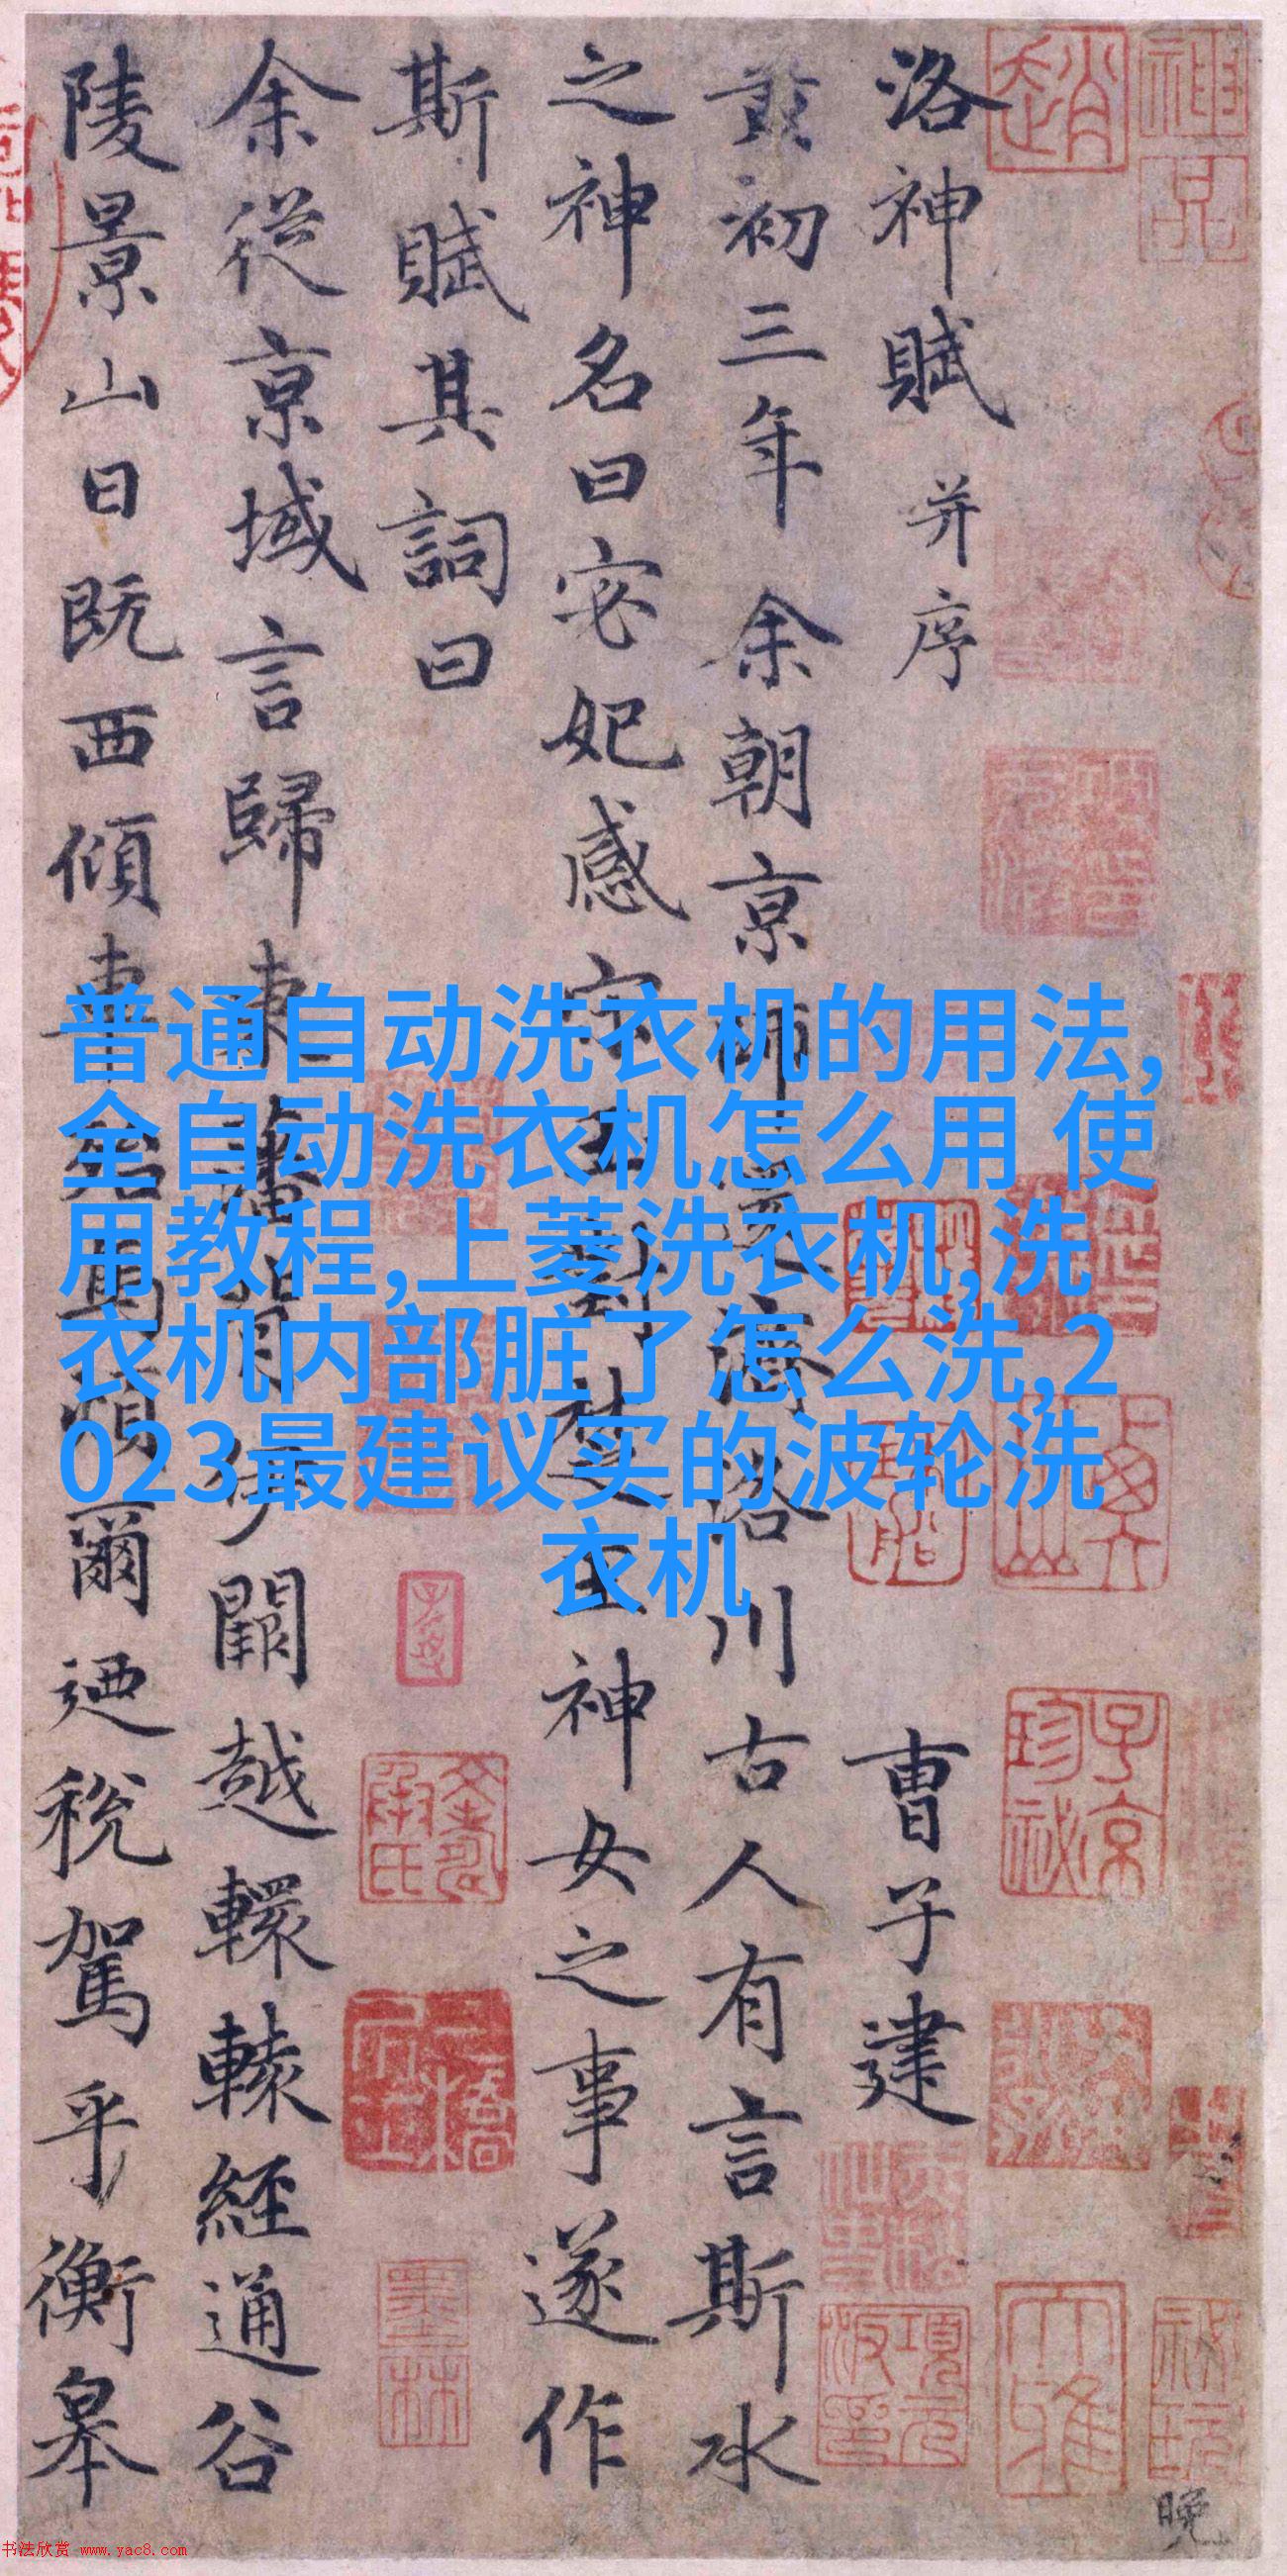 洛神賦 并序 曹子建
黃初三年余朝京師還濟洛川古人有言斯水
之神名曰宓妃感宋玉對楚王神女之事遂作
斯賦其詞曰
余從京域言歸東藩背伊闕越轘轅經通谷
陵景山日既西傾車殆馬煩爾迺稅駕乎衡皋
普通自动洗衣机的用法,
全自动洗衣机怎么用 使
用教程,上菱洗衣机,洗
衣机内部脏了怎么洗,2
023最建议买的波轮洗
衣机
晚
书法欣赏 www.yac8.com